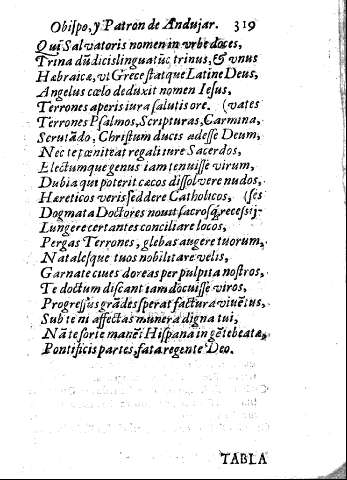 Obispo, y Patron de Andujar. 319
Qui Salvatoris nomen in vrbe doces,
Trina dũ dicis linguatũc trinus, & vnus
Hæbraicæ, vt Grece statque Latine Deus,
Angelus cœlo deduxit nomen Iesus,
Terrones aperis iura salutis ore. (vates
Terrones Psalmos, Scripturas, Carmina,
Scrutãdo, Christum ducis adesse Deum,
Nec te pœniteat regali iure Sacerdos,
Electumque genus iam tenuisse virum,
Dubia qui poterit cæcos dissolvere nudos,
Hæreticos veris seddere Catholicos, (ses
Dogmata Doctores noust sacrosq, recessij-
Lungere certantes conciliare locos,
Pergas Terrones, glebas augere tuorum,
Natalesque tuos nobilitare velis,
Garnate ciues doreas per pulpita nostros,
Te doctum discant iam docuisse viros,
Progressus grãdes sperat factura viuẽtus,
Sub te ni affectas munera digna tui,
Nã te sorte manẽt Hispana in gẽte beatæ,
Pontificis partes, fata regente Deo.
TABLA